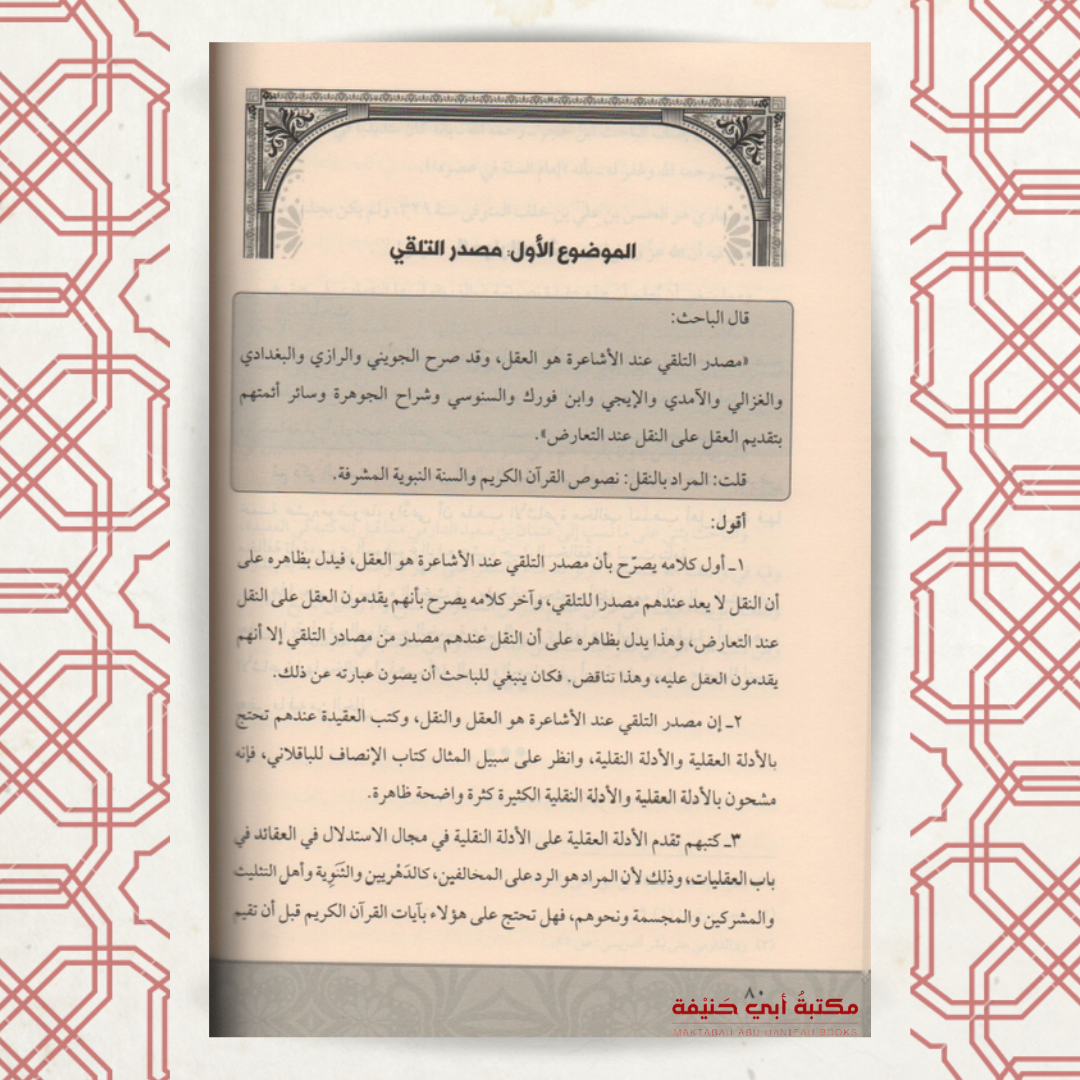 الموضوع الأول: مصدر التلقي
قال الباحث:
«مصدر التلقي عند الأشاعرة هو العقل، وقد صرح الجويني والرازي والبغدادي
والغزالي والآمدي والإيجي وابن فورك والسنوسي وشراح الجوهرة وسائر أئمتهم
بتقديم العقل على النقل عند التعارض».
قلت: المراد بالنقل: نصوص القرآن الكريم والسنة النبوية المشرفة.
أقول:
١ـ أول كلامه يصرّح بأن مصدر التلقي عند الأشاعرة هو العقل، فيدل بظاهره على
أن النقل لا يعد عندهم مصدرا للتلقي، وآخر كلامه يصرح بأنهم يقدمون العقل على النقل
عند التعارض، وهذا يدل بظاهره على أن النقل عندهم مصدر من مصادر التلقي إلا أنهم
يقدمون العقل عليه، وهذا تناقض. فكان ينبغي للباحث أن يصون عبارته عن ذلك.
٢ـ إن مصدر التلقي عند الأشاعرة هو العقل والنقل، وكتب العقيدة عندهم تحتج
بالأدلة العقلية والأدلة النقلية، وانظر على سبيل المثال كتاب الإنصاف للباقلاني، فإنه
مشحون بالأدلة العقلية والأدلة النقلية الكثيرة كثرة واضحة ظاهرة.
٣ـ كتبهم تقدم الأدلة العقلية على الأدلة النقلية في مجال الاستدلال في العقائد في
باب العقليات، وذلك لأن المراد هو الرد على المخالفين، كالدَهْريين والثَنَوِية وأهل التثليث
والمشركين والمجسمة ونحوهم، فهل تحتج على هؤلاء بآيات القرآن الكريم قبل أن تقيم
٨٠
مكتبةُ أبي حَنيْفة
MAKTABAH ABU HANIFAH BOOKS